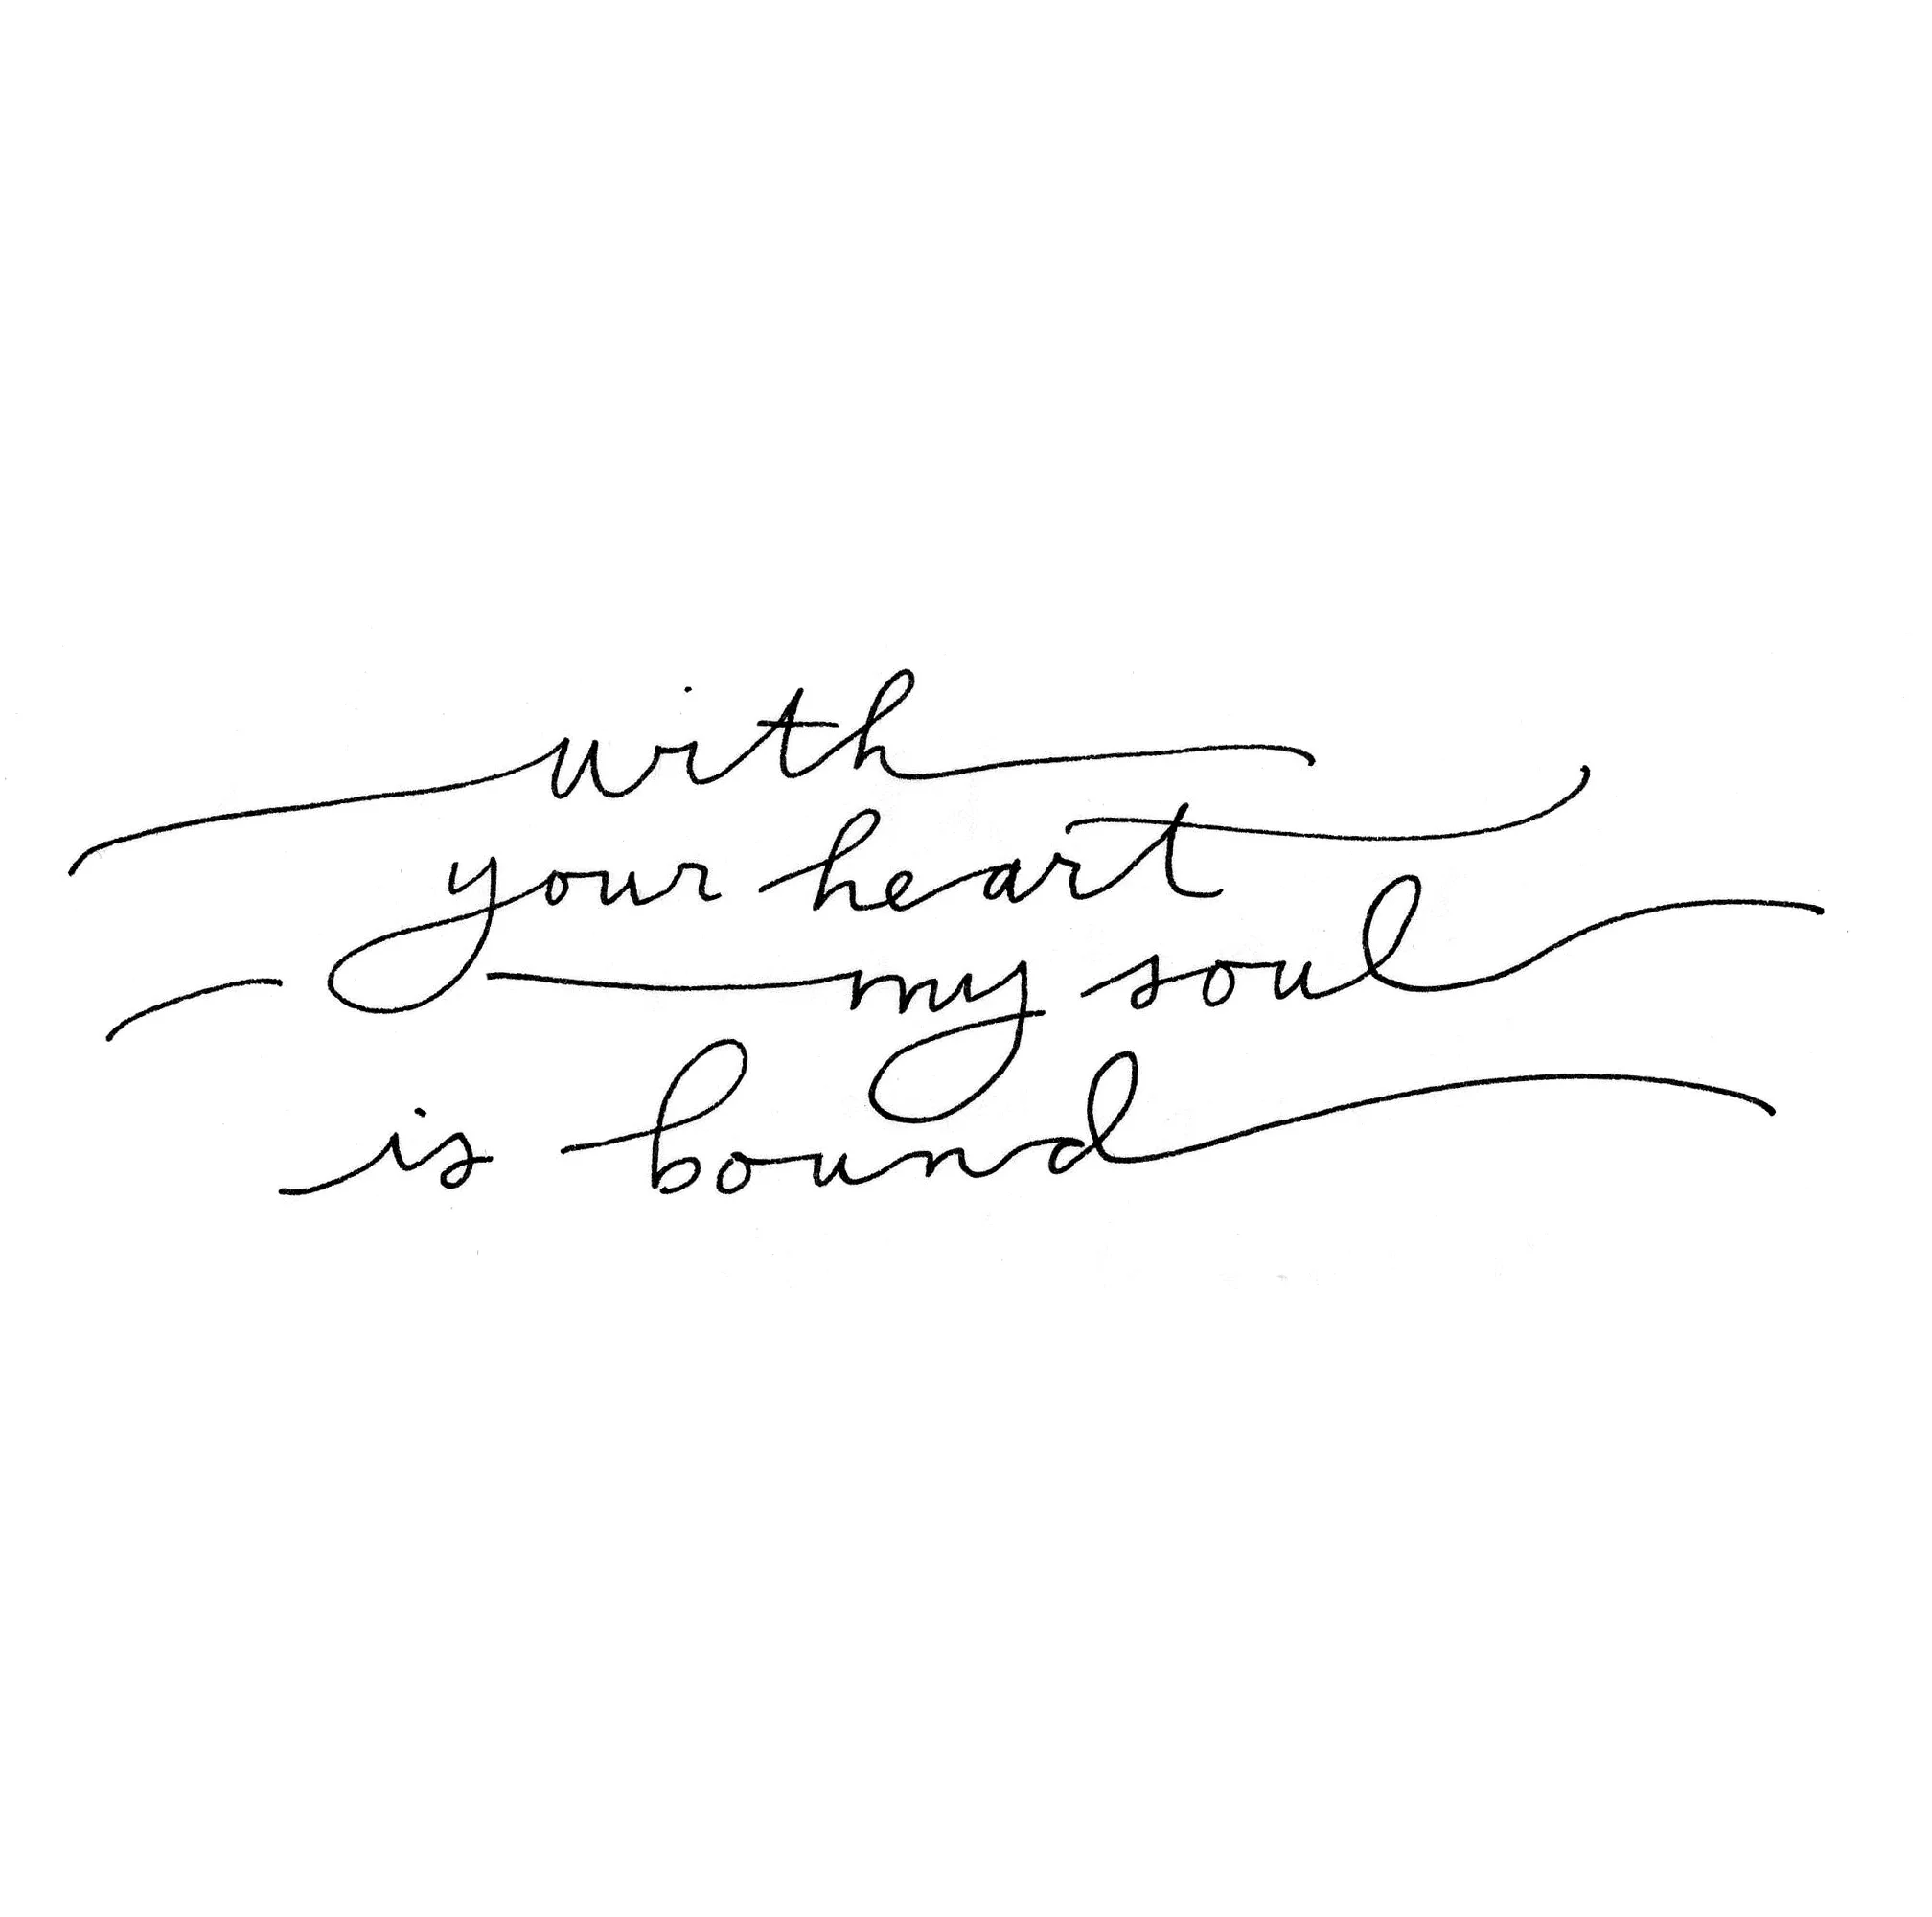 with
your heart
my soul
is bound